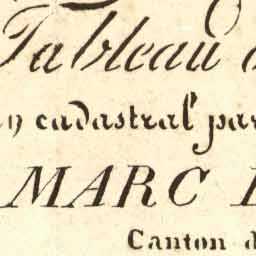 Tableau d
n cadastral par
MARC
Canton d